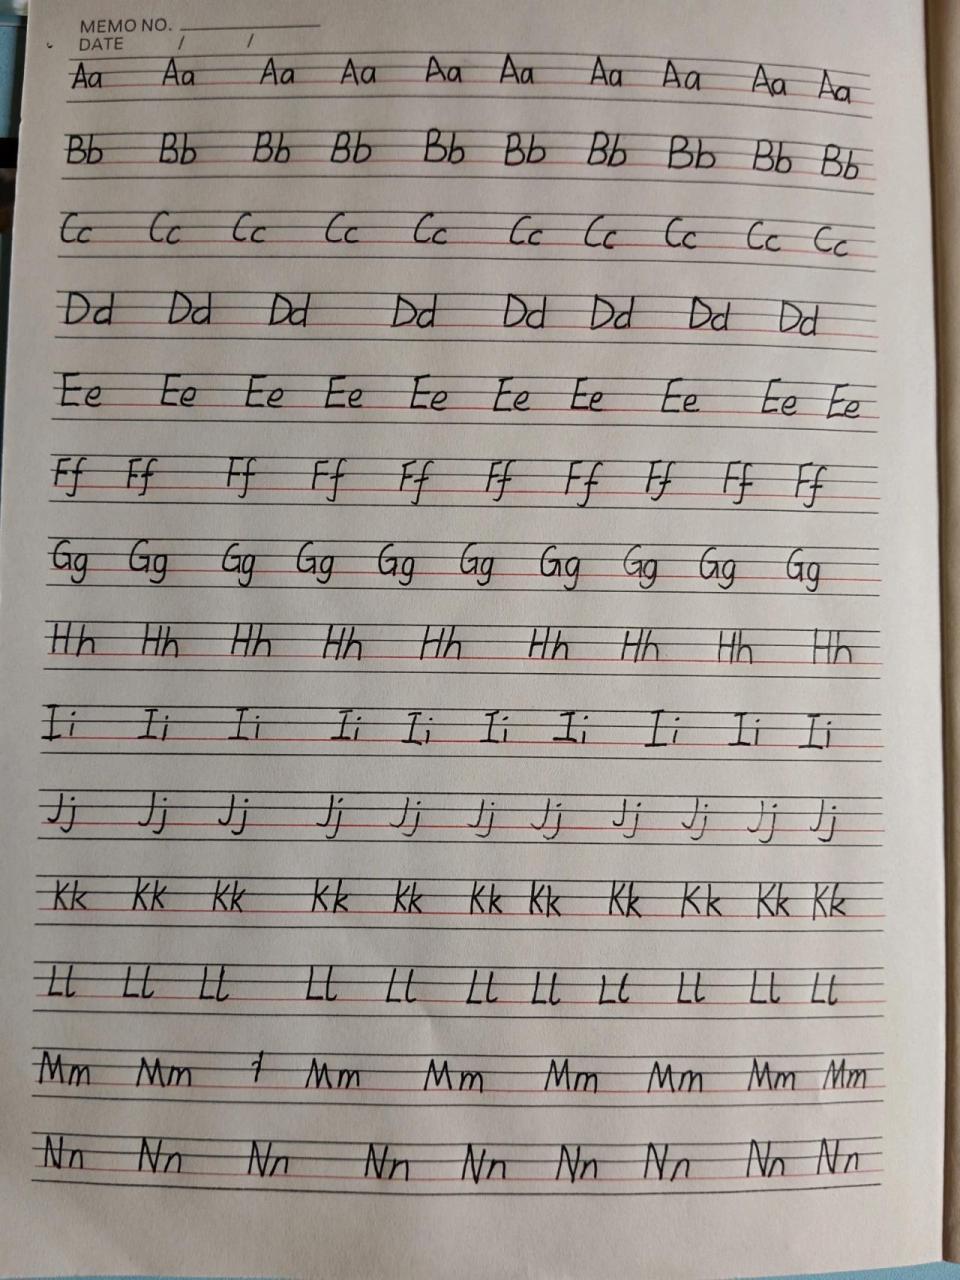 MEMO NO.
DATE / /
Aa Aa Aa Aa Aa Aa Aa Aa Aa Aa
Bb Bb Bb Bb Bb Bb Bb Bb Bb Bb
Cc Cc Cc Cc Cc Cc Cc Cc Cc Cc
Dd Dd Dd Dd Dd Dd Dd Dd
Ee Ee Ee Ee Ee Ee Ee Ee Ee Ee
Ff Ff Ff Ff Ff Ff Ff Ff Ff Ff
Gg Gg Gg Gg Gg Gg Gg Gg Gg Gg
Hh Hh Hh Hh Hh Hh Hh Hh Hh
Ii Ii Ii Ii Ii Ii Ii Ii Ii Ii
Jj Jj Jj Jj Jj Jj Jj Jj Jj Jj Jj
Kk Kk Kk Kk Kk Kk Kk Kk Kk Kk Kk
Ll Ll Ll Ll Ll Ll Ll Ll Ll Ll Ll
Mm Mm Mm Mm Mm Mm Mm Mm
Nn Nn Nn Nn Nn Nn Nn Nn Nn